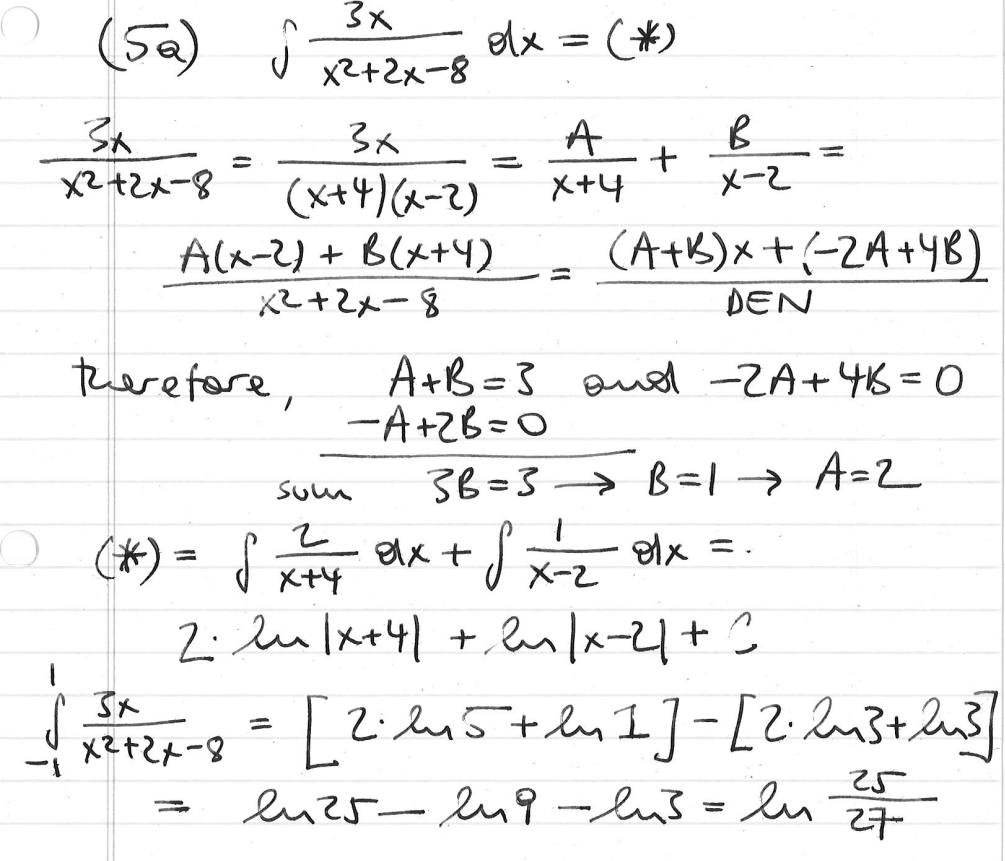 (5a) ∫ 3x/(x²+2x-8) dx = (*)
3x/(x²+2x-8) = 3x/((x+4)(x-2)) = A/(x+4) + B/(x-2) =
(A(x-2) + B(x+4))/(x²+2x-8) = ((A+B)x + (-2A+4B))/DEN
therefore, A+B=3 and -2A+4B=0
-A+2B=0
sum 3B=3 → B=1 → A=2
(*) = ∫ 2/(x+4) dx + ∫ 1/(x-2) dx =.
2·ln|x+4| + ln|x-2| + C
∫₋₁¹ 3x/(x²+2x-8) = [2·ln5+ln1]-[2·ln3+ln3]
= ln25-ln9-ln3 = ln 25/27